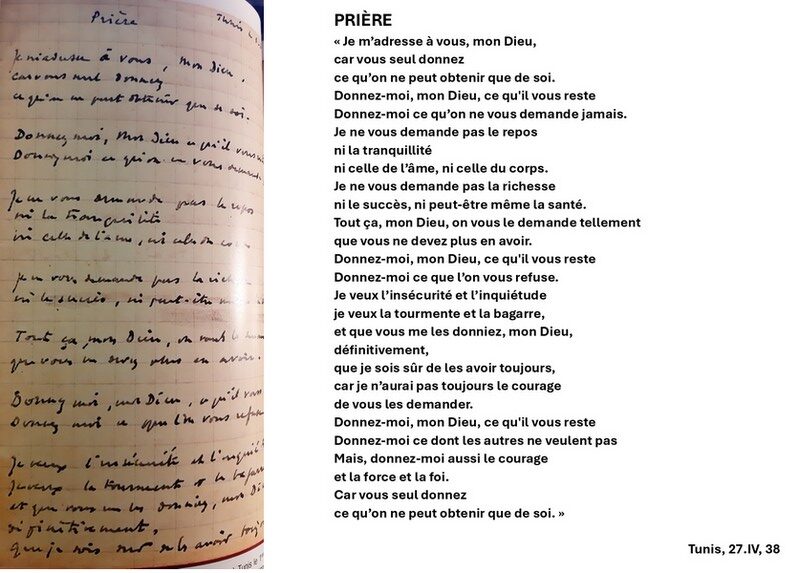 Prière
Tunis
Je m'adresse à vous, mon Dieu,
car vous seul donnez
ce qu'on ne peut obtenir que de soi.
Donnez moi, mon Dieu ce qu'il vous
Donnez moi ce qu'on ne vous demande
Je ne vous demande pas le repos
ni la tranquillité
ni celle de l'âme, ni celle du corps
Je ne vous demande pas la
ni le succès, ni peut-être même
Tout ça, mon Dieu, on vous le
que vous ne devez plus en avoir.
Donnez moi, mon Dieu, ce qu'il vous
Donnez moi ce que l'on vous refuse
Je veux l'insécurité et l'
Je veux la tourmente et la bagarre
et que vous me les donniez, mon
définitivement,
que je sois sûr de les avoir
PRIÈRE
« Je m’adresse à vous, mon Dieu,
car vous seul donnez
ce qu’on ne peut obtenir que de soi.
Donnez-moi, mon Dieu, ce qu'il vous reste
Donnez-moi ce qu’on ne vous demande jamais.
Je ne vous demande pas le repos
ni la tranquillité
ni celle de l’âme, ni celle du corps.
Je ne vous demande pas la richesse
ni le succès, ni peut-être même la santé.
Tout ça, mon Dieu, on vous le demande tellement
que vous ne devez plus en avoir.
Donnez-moi, mon Dieu, ce qu'il vous reste
Donnez-moi ce que l’on vous refuse.
Je veux l’insécurité et l’inquiétude
je veux la tourmente et la bagarre,
et que vous me les donniez, mon Dieu,
définitivement,
que je sois sûr de les avoir toujours,
car je n’aurai pas toujours le courage
de vous les demander.
Donnez-moi, mon Dieu, ce qu'il vous reste
Donnez-moi ce dont les autres ne veulent pas
Mais, donnez-moi aussi le courage
et la force et la foi.
Car vous seul donnez
ce qu’on ne peut obtenir que de soi. »
Tunis, 27.IV, 38